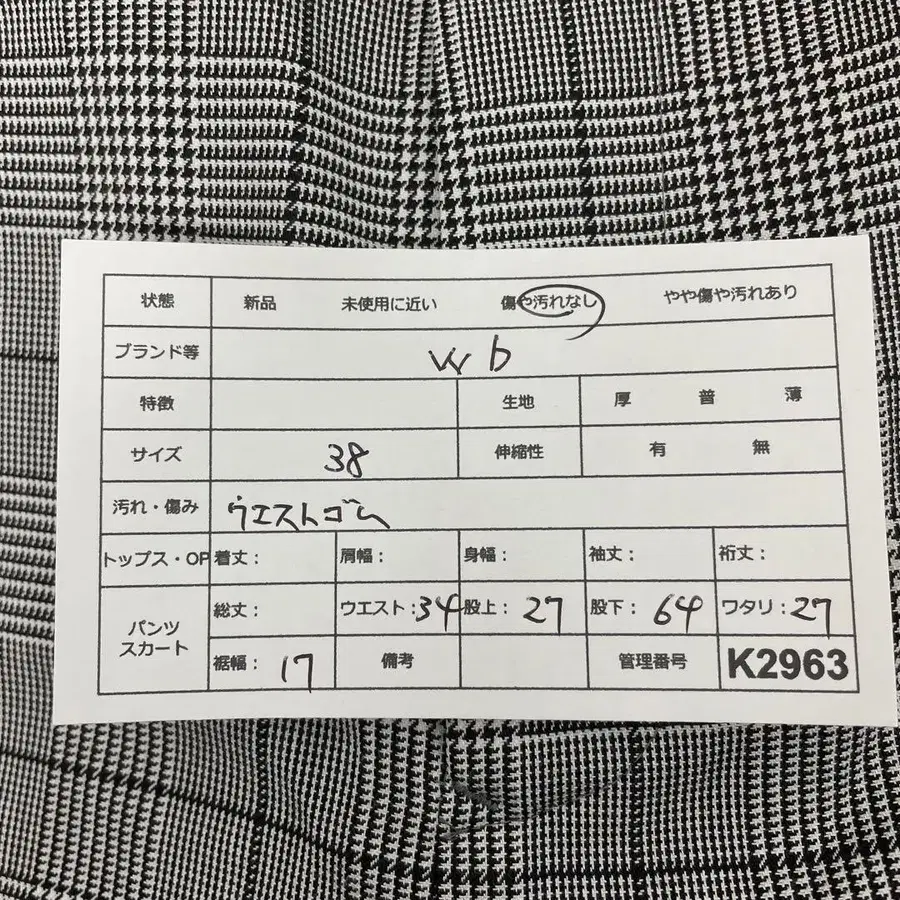 状態 新品 未使用に近い 傷や汚れなし やや傷や汚れあり
ブランド等 wb
特徴 生地 厚 普 薄
サイズ 38 伸縮性 有 無
汚れ・傷み ウエストゴム
トップス・OP 着丈： 肩幅： 身幅： 袖丈： 裄丈：
パンツ スカート 総丈： ウエスト：34 股上：27 股下：64 ワタリ：27
裾幅：17 備考 管理番号 K2963